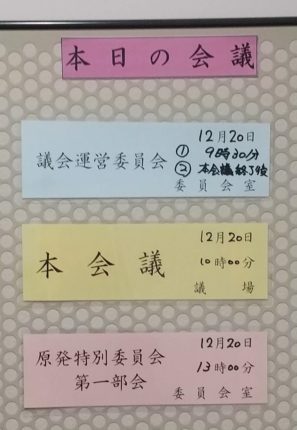 本日の会議
12月20日
① 9時30分
議会運営委員会
② 本会議終了後
委員会室
12月20日
本会議
10時00分
議場
原発特別委員会
第一部会
12月20日
13時00分
委員会室